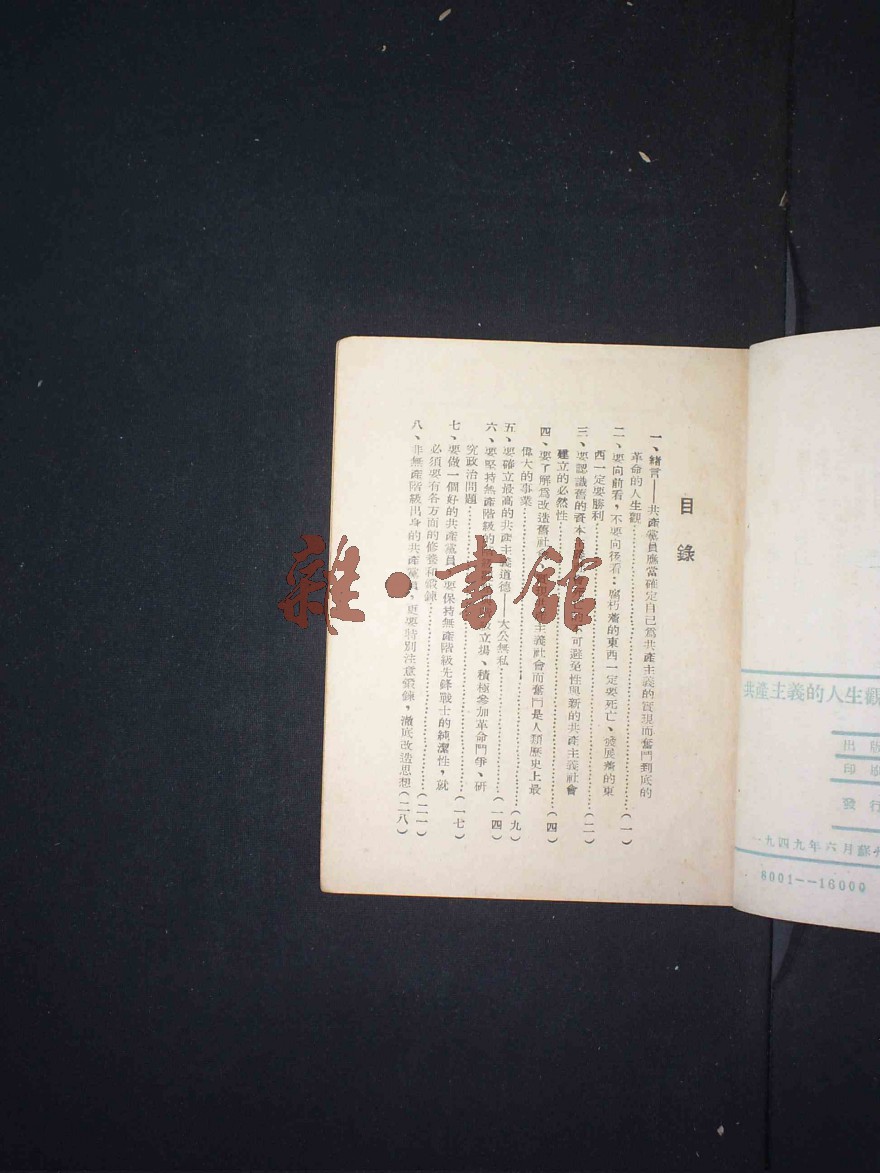 共產主義的人生觀
出版
印刷
發行
一九四九年六月蘇
8001--16000
目錄
一、緒言——共產黨員應當確定自己爲共產主義的實現而奮鬥到底的
革命的人生觀……(一)
二、要向前看,不要向後看:腐朽着的東西一定要死亡、發展着的東
西一定要勝利……(二)
三、要認識舊的資本 可避免性與新的共產主義社會
建立的必然性……(四)
四、要了解爲改造舊社會 主義社會而奮鬥是人類歷史上最
偉大的事業……(九)
五、要確立最高的共產主義道德——大公無私……(一四)
六、要堅持無產階級的 立場、積極參加革命鬥爭、研
究政治問題……(一七)
七、要做一個好的共產黨員 要保持無產階級先鋒戰士的純潔性,就
必須要有各方面的修養和鍛鍊……(二一)
八、非無產階級出身的共產黨員,更要特別注意鍛鍊,澈底改造思想(二八)
雜·書館